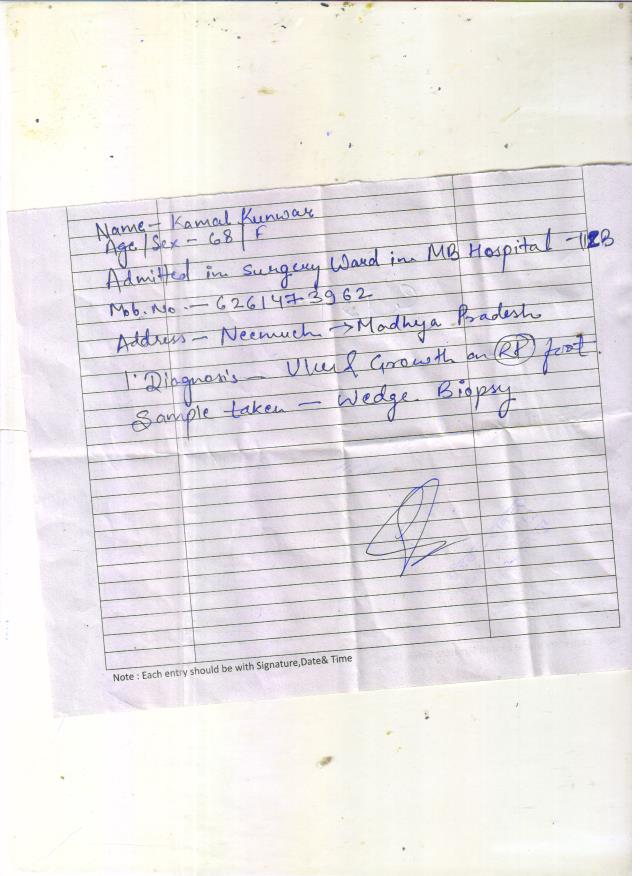 Name - Kamal Kunwar
Age/Sex - 68/F
Admitted in Surgery Ward in MB Hospital -
Mob. No. - 6261473962
Address - Neemuch → Madhya Pradesh
Diagnosis - Ulcer & Growth on Rt foot.
Sample taken - Wedge Biopsy
Note : Each entry should be with Signature,Date& Time